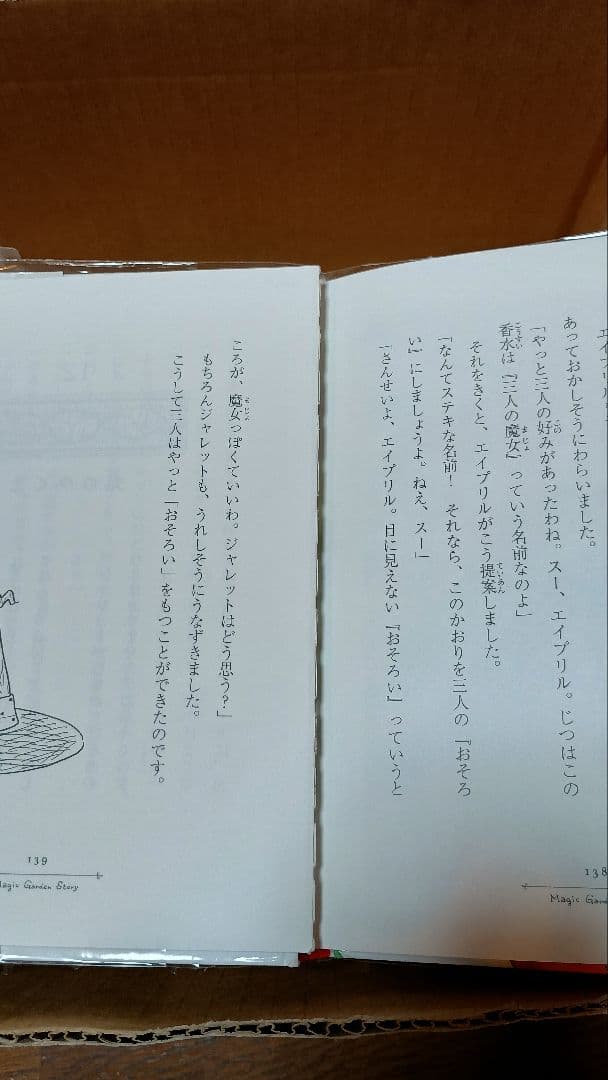 エイプリル
あっておかしそうにわらいました。
「やっと三人の好みがあったわね。スー、エイプリル。じつはこの
香水は『三人の魔女』っていう名前なのよ」
それをきくと、エイプリルがこう提案しました。
「なんてステキな名前！　それなら、このかおりを三人の『おそろ
い』にしましょうよ。ねえ、スー」
「さんせいよ、エイプリル。目に見えない『おそろい』っていうと
138
Magic Gar
ころが、魔女っぽくていいわ。ジャレットはどう思う？」
もちろんジャレットも、うれしそうにうなずきました。
こうして三人はやっと「おそろい」をもつことができたのです。
139
Magic Garden Story